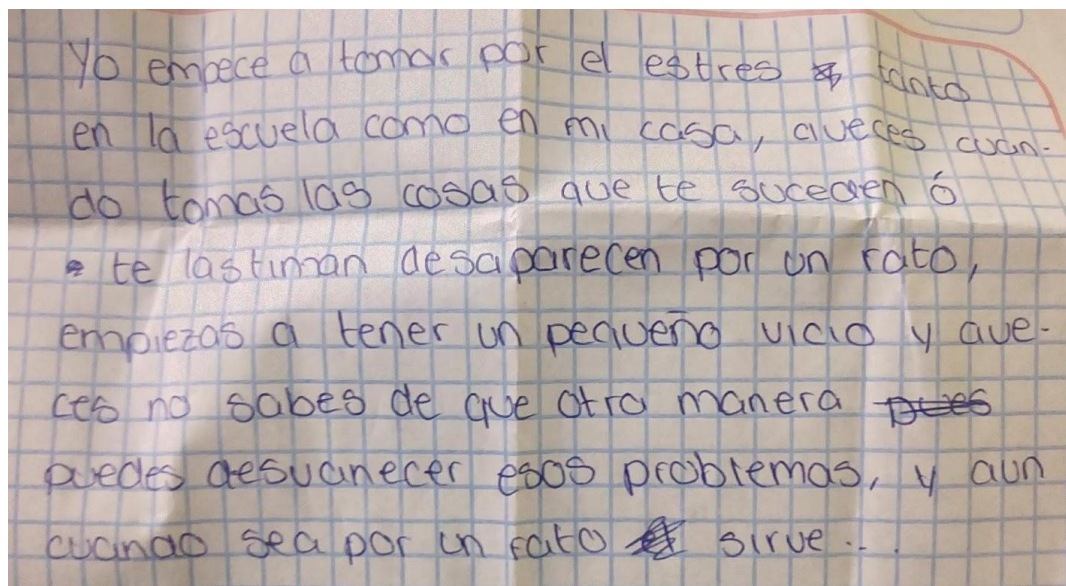 Yo empece a tomar por el estres tanto
en la escuela como en mi casa, aveces cuan-
do tomas las cosas que te suceden ó
te lastiman desaparecen por un rato,
empiezas a tener un pequeño vicio y ave-
ces no sabes de que otra manera pues
puedes desvanecer esos problemas, y aun
cuando sea por un rato sirve...